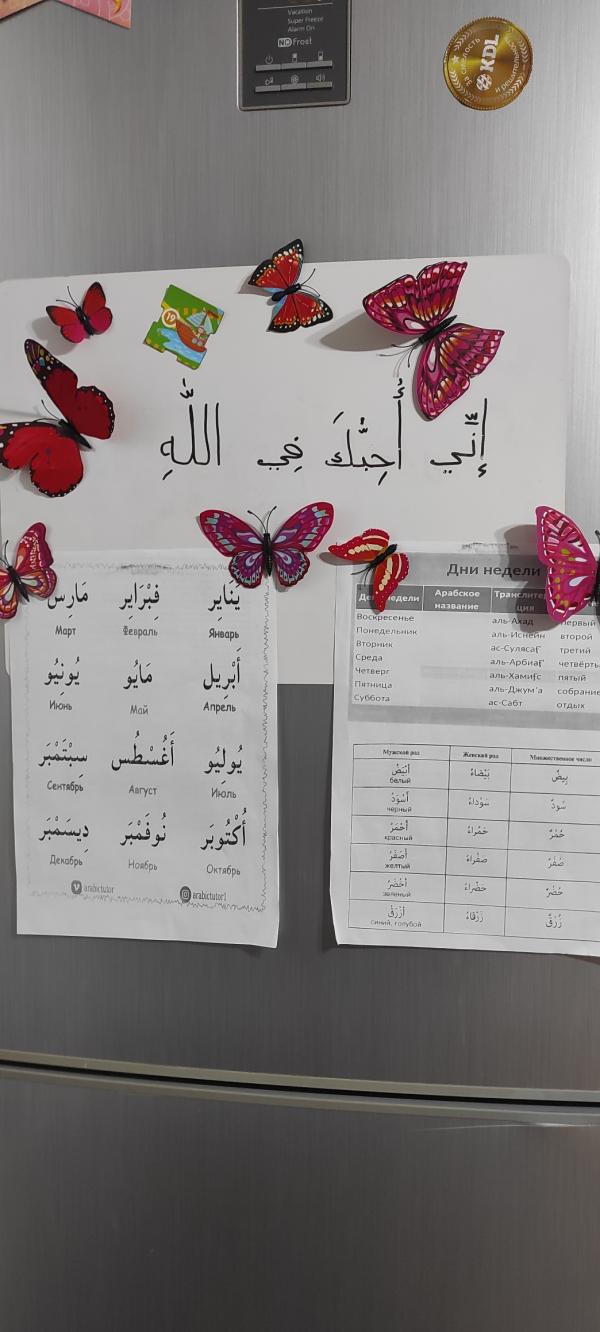 Vacation
Super Freeze
Alarm On
NO Frost
KDL
за смелость
19
إِنِّي أُحِبُّكَ فِي اللَّهِ
يَنَايِر فِبْرَايِر مَارِس
Январь Февраль Март
أَبْرِيل مَايُو يُونِيُو
Апрель Май Июнь
يُولِيُو أَغُسْطُس سِبْتَمْبَر
Июль Август Сентябрь
أُكْتُوبَر نُوفَمْبَر دِيسَمْبَر
Октябрь Ноябрь Декабрь
arabictutor arabictutor1
Дни недели
недели Арабское название
Воскресенье аль-Ахад первый
Понедельник аль-Иснейн второй
Вторник третий
Среда
Четверг пятый
Пятница аль-Джум'а собрание
Суббота ас-Сабт отдых
Мужской род Женский род Множественное число
أَبْيَضُ بَيْضَاءُ بِيضٌ
белый
أَسْوَدُ سَوْدَاءُ سُودٌ
черный
أَحْمَرُ حَمْرَاءُ حُمْرٌ
красный
أَصْفَرُ صَفْرَاءُ صُفْرٌ
желтый
أَخْضَرُ خَضْرَاءُ خُضْرٌ
зеленый
أَزْرَقُ زَرْقَاءُ زُرْقٌ
синий, голубой